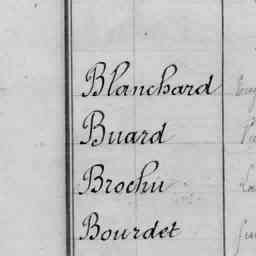 Blanchard
Buard
Brochu
Bourdet